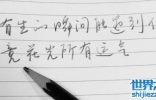 有生的瞬间能遇到你
竟花光所有运气
世界
www.shijiezz